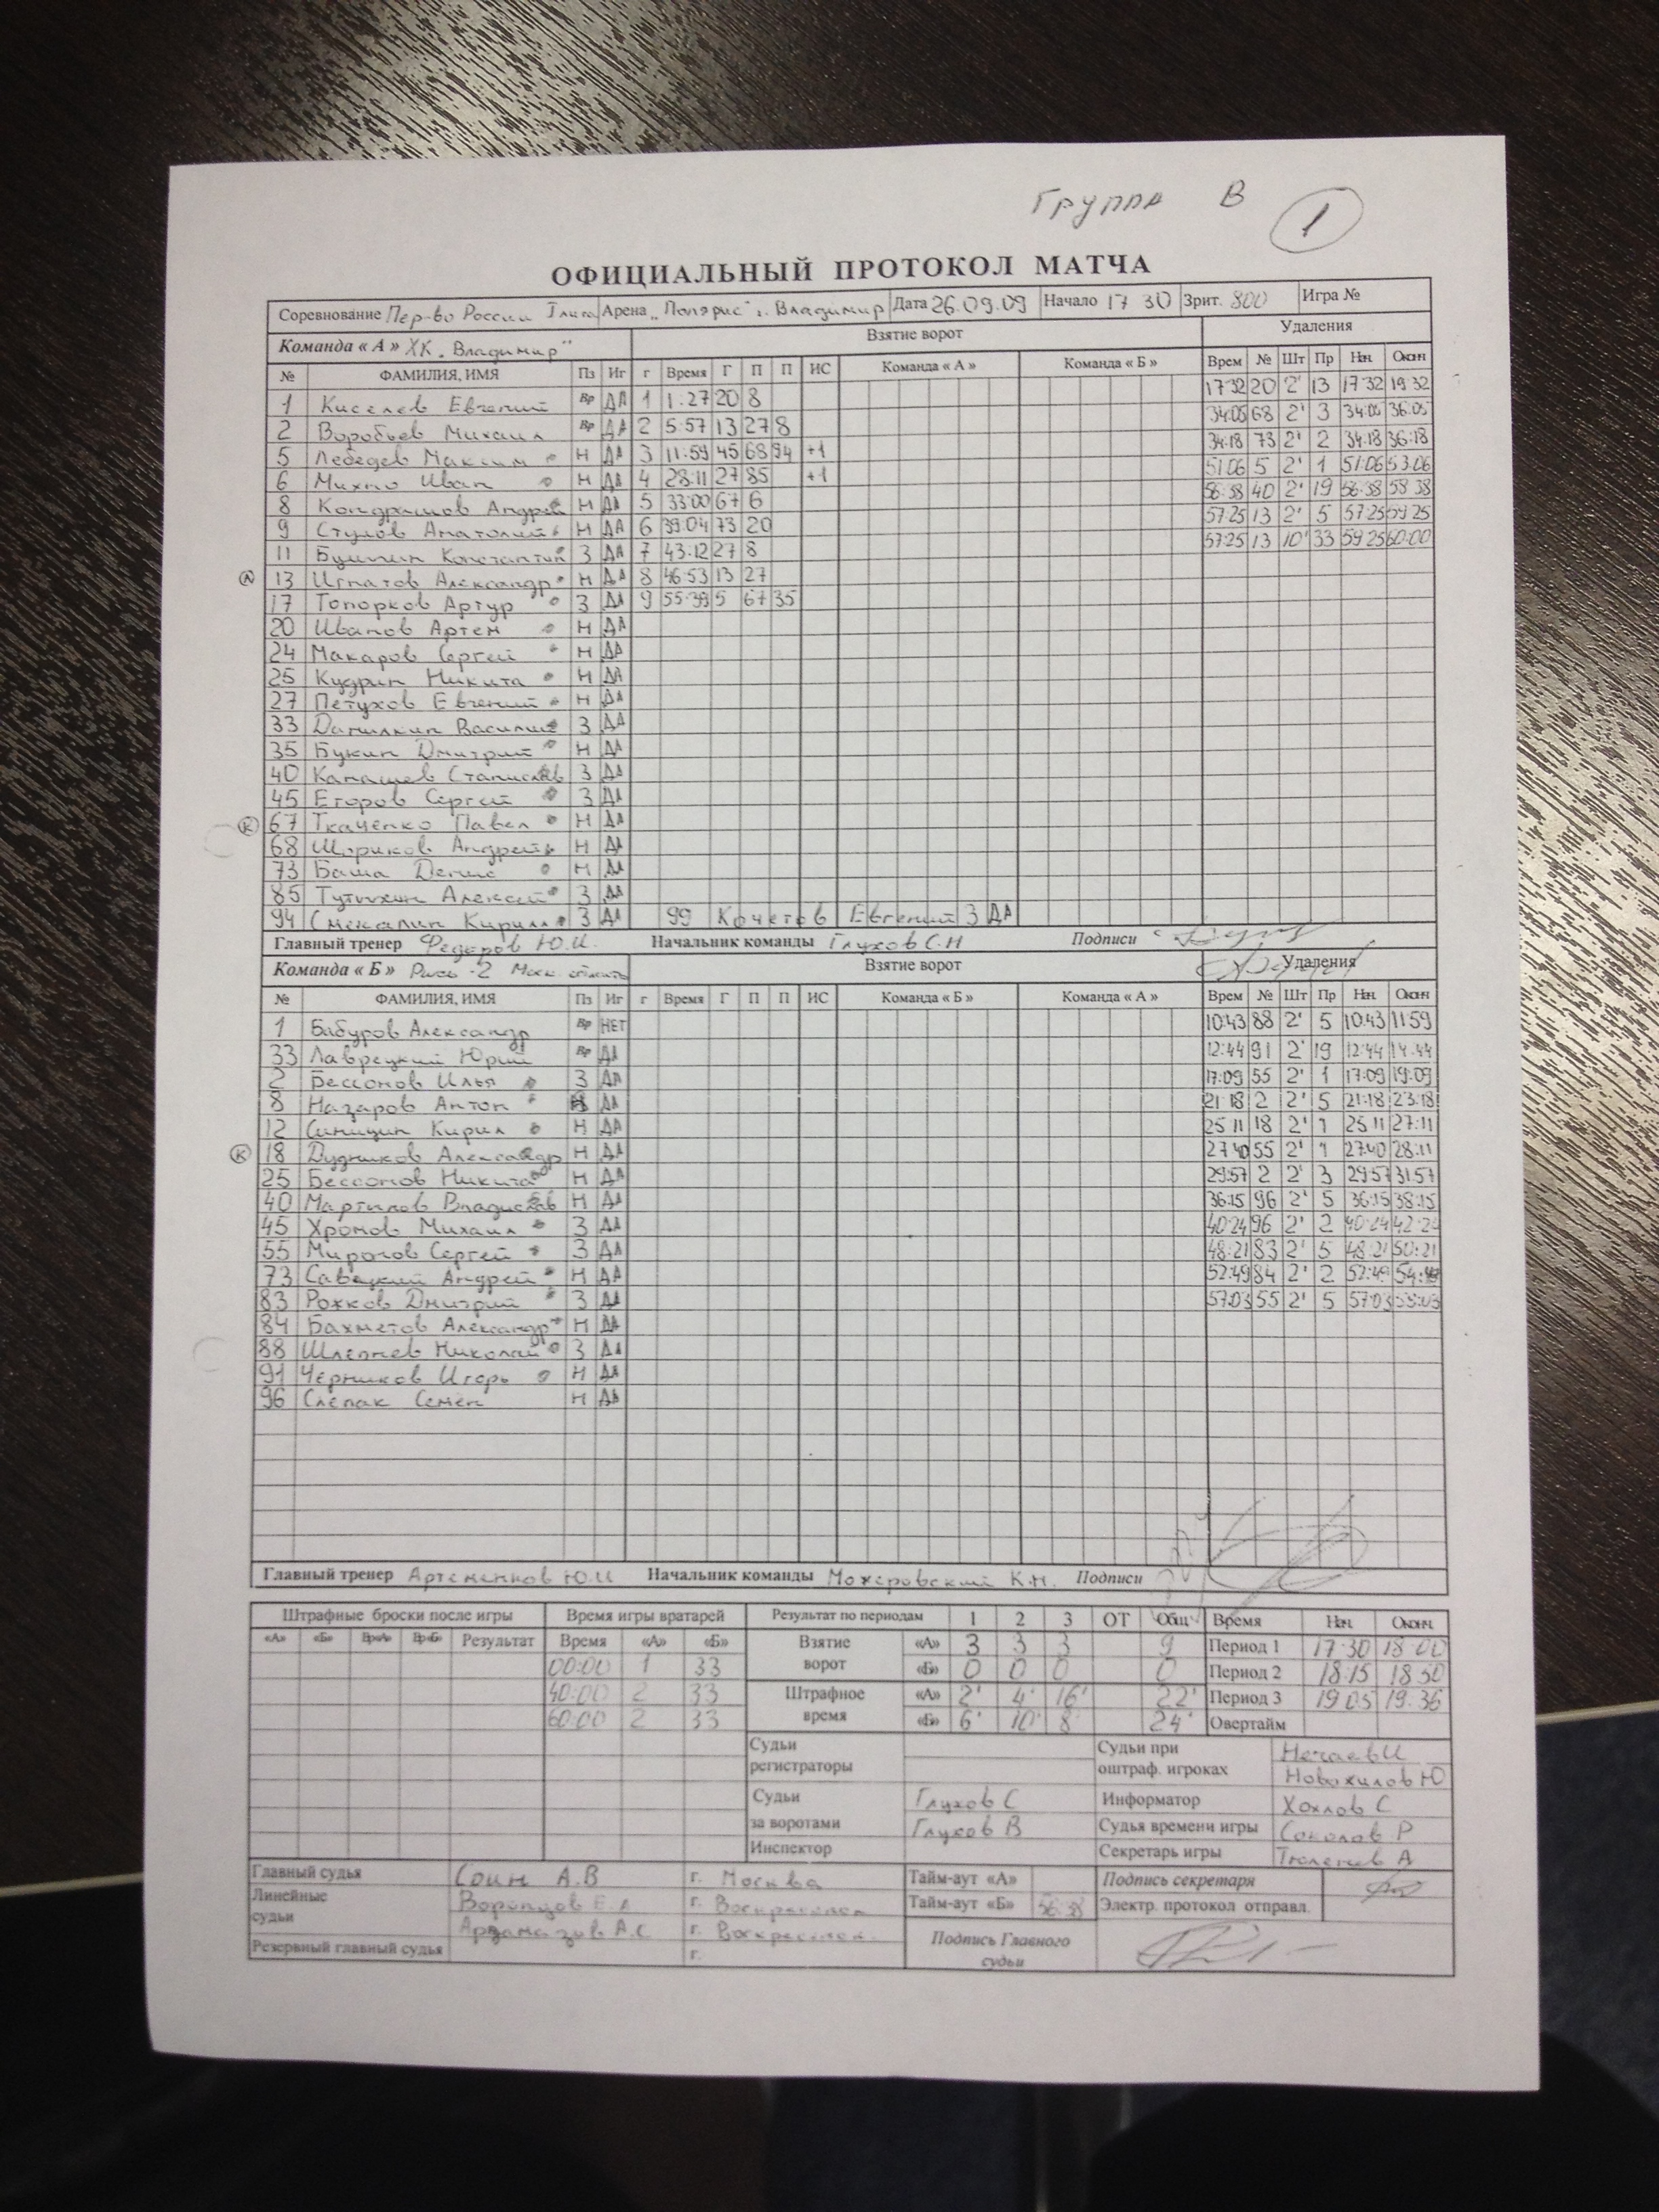 Группа В 1
ОФИЦИАЛЬНЫЙ ПРОТОКОЛ МАТЧА
Соревнование Пер-во России I лига Арена „Полярис" г. Владимир Дата 26.09.09 Начало 17 30 Зрит. 800 Игра №
Команда « А » ХК „Владимир" Взятие ворот Удаления
№ ФАМИЛИЯ, ИМЯ Пз Иг г Время Г П П ИС Команда « А » Команда « Б » Врем № Шт Пр Нач. Оконч
1 Киселев Евгений Вр ДА 1 1:27 20 8 17 32 20 2' 13 17 32 19 32
2 Воробьев Михаил Вр ДА 2 5:57 13 27 8 34:05 68 2' 3 34:05 36:05
5 Лебедев Максим Н ДА 3 11:59 45 68 94 +1 34:18 73 2' 2 34:18 36:18
6 Михно Иван Н ДА 4 28:11 27 85 +1 51:06 5 2' 1 51:06 53:06
8 Кондрашов Андрей Н ДА 5 33:00 67 6 56:38 40 2' 19 56:38 58 38
9 Стулов Анатолий Н ДА 6 39:04 73 20 57:25 13 2' 5 57:25 59 25
11 Бушмин Константин З ДА 7 43:12 27 8 57:25 13 10' 33 59 25 60:00
А 13 Игнатов Александр Н ДА 8 46:53 13 27
17 Топорков Артур З ДА 9 55:39 5 67 35
20 Иванов Артем Н ДА
24 Макаров Сергей Н ДА
25 Кудрин Никита Н ДА
27 Петухов Евгений Н ДА
33 Данилкин Василий З ДА
35 Букин Дмитрий Н ДА
40 Капашев Станислав З ДА
45 Егоров Сергей З ДА
К 67 Ткаченко Павел Н ДА
68 Шориков Андрей Н ДА
73 Баша Денис Н ДА
85 Тутыхин Алексей З ДА
94 Смекалин Кирилл З ДА 99 Кочетов Евгений З ДА
Главный тренер Федоров Ю.И. Начальник команды Глухов С.Н Подписи
Команда « Б » Рысь -2 Взятие ворот Удаления
№ ФАМИЛИЯ, ИМЯ Пз Иг г Время Г П П ИС Команда « Б » Команда « А » Врем № Шт Пр Нач. Оконч
1 Бабуров Александр Вр НЕТ 10:43 88 2' 5 10:43 11 59
33 Лаврецкий Юрий Вр ДА 12:44 91 2' 19 12:44 14:44
2 Бессонов Илья З ДА 17:09 55 2' 1 17:09 19:09
8 Назаров Антон ДА 21 18 2 2' 5 21:18 23:18
12 Синицин Кирил Н ДА 25 11 18 2' 1 25 11 27:11
К 18 Дудников Александр Н ДА 27 40 55 2' 1 27:40 28:11
25 Бессонов Никита Н ДА 29:57 2 2' 3 29:57 31:57
40 Мартынов Владислав Н ДА 36:15 96 2' 5 36:15 38:15
45 Хромов Михаил З ДА 40:24 96 2' 2 40:24 42:24
55 Миронов Сергей З ДА 48:21 83 2' 5 48:21 50:21
73 Савацкий Андрей Н ДА 52:49 84 2' 2 52:49 54:49
83 Рожков Дмитрий З ДА 57:03 55 2' 5 57:03 59:03
84 Бахметов Александр Н ДА
88 Шлепнев Николай З ДА
91 Черников Игорь Н ДА
96 Слепак Семен Н ДА
Главный тренер Артеменков Ю.И Начальник команды Мохеровский К.Н. Подписи
Штрафные броски после игры Время игры вратарей Результат по периодам 1 2 3 ОТ Общ Время Нач. Оконч
«А» «Б» Вр«А» Вр«Б» Результат Время «А» «Б» Взятие ворот «А» 3 3 3 9 Период 1 17:30 18 00
00:00 1 33 «Б» 0 0 0 0 Период 2 18:15 18 50
40:00 2 33 Штрафное время «А» 2' 4' 16' 22' Период 3 19 05 19:36
60:00 2 33 «Б» 6' 10' 8' 24' Овертайм
Судьи регистраторы Судьи при оштраф. игроках Нечаев И
Новожилов Ю
Судьи за воротами Глухов С Информатор Хохлов С
Глухов В Судья времени игры Соколов Р
Инспектор Секретарь игры Тюленев А
Главный судья Соин А.В г. Москва Тайм-аут «А» Подпись секретаря
Линейные судьи Воронцов Е.А г. Воскресенск Тайм-аут «Б» 56:38 Электр. протокол отправл.
Арзамазов А.С г. Воскресенск Подпись Главного судьи
Резервный главный судья г.